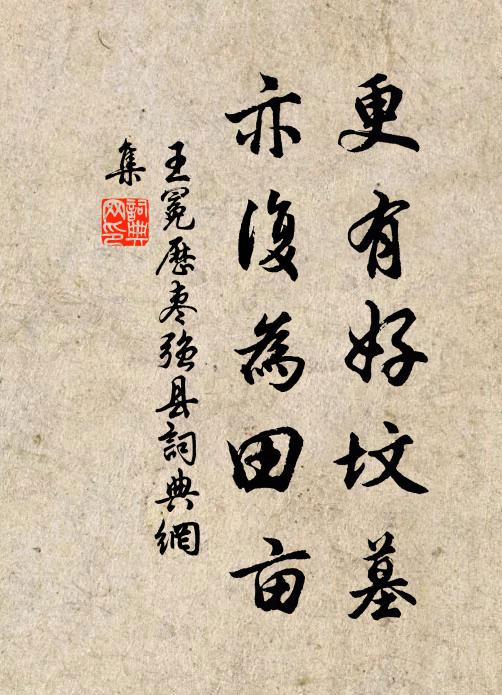 更有好坟墓
亦復為田亩
王冕歷枣强县詞典網
集
詞典
网印